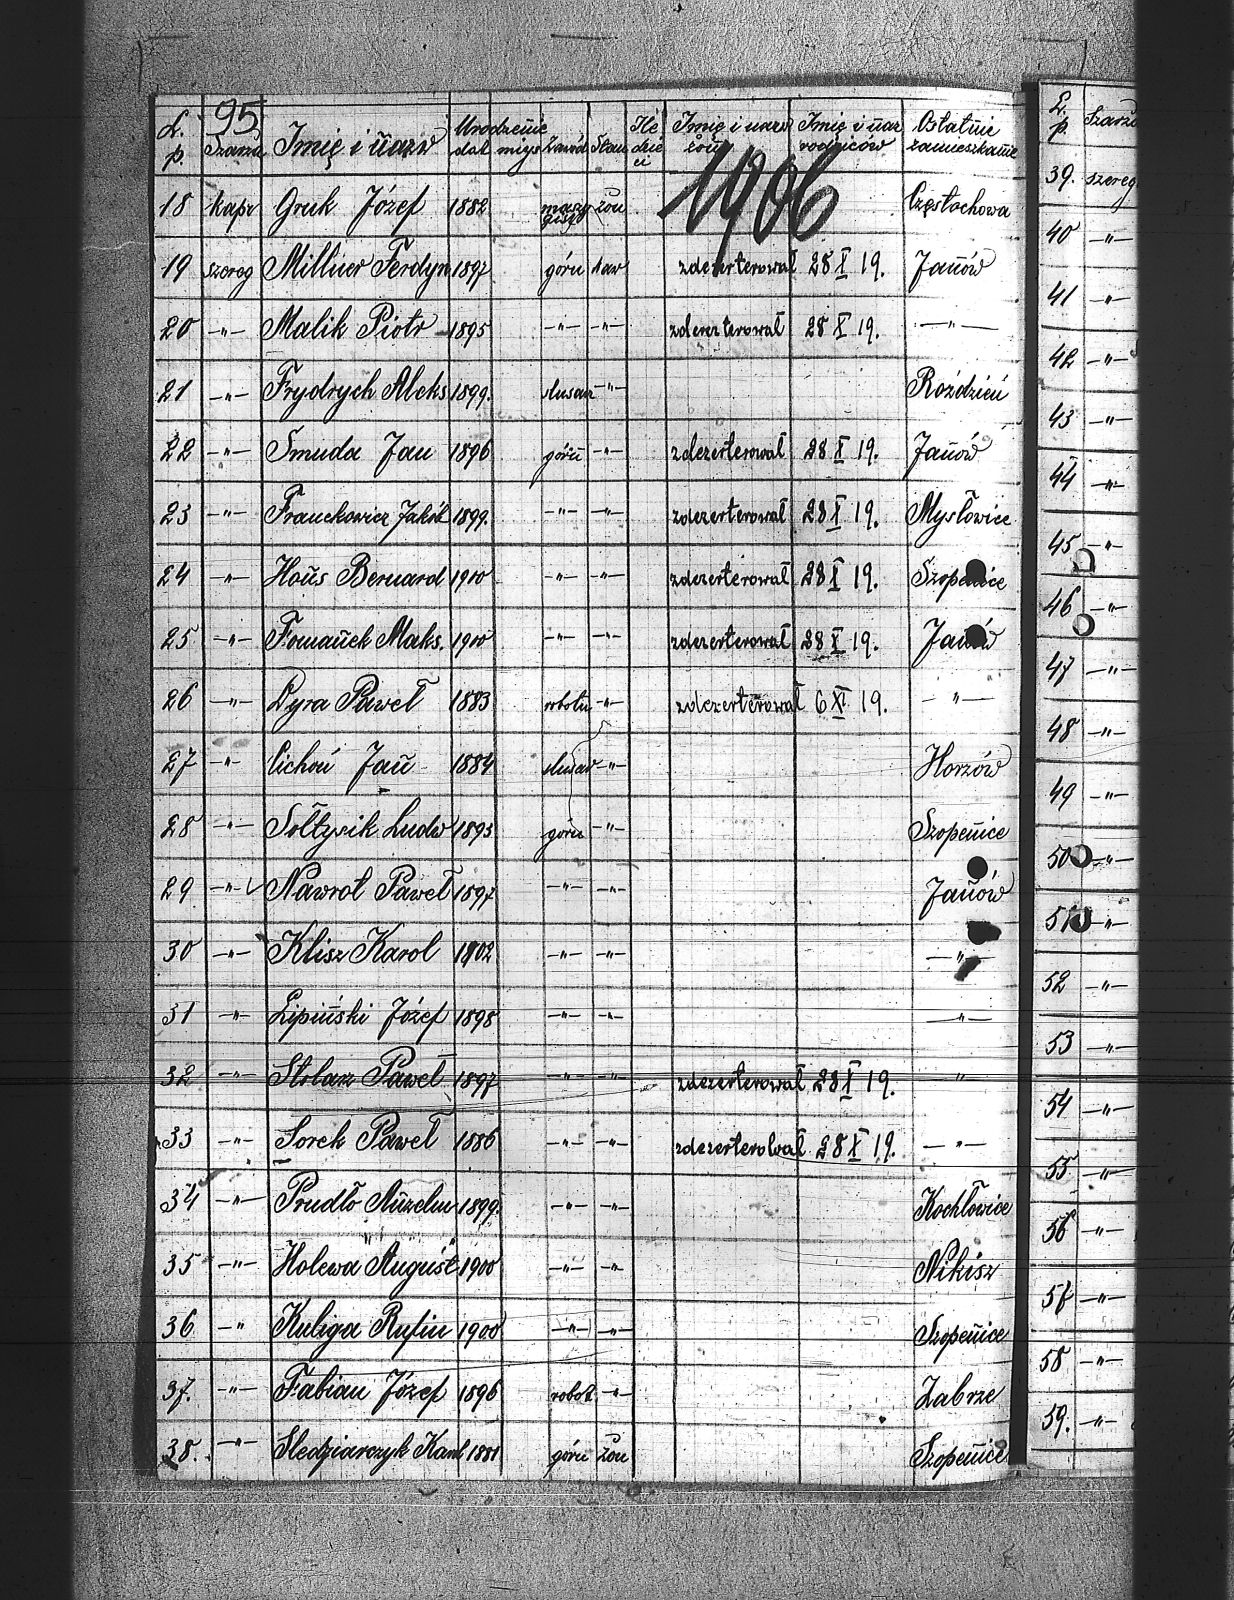 95
L. p. Szarża Imię i nazw Urodzenie dat miejs Zawód Stan Ile dzieci Imię i nazw żony Imię i naz rodziców Ostatnie zamieszkanie
1906
18 kapr Gruk Józef 1882 żon Częstochowa
19 szereg Millner Ferdyn 1897 górn kaw zdezerterował 28 X 19. Janów
20 -"- Malik Piotr 1895 -"- -"- zdezerterował 28 X 19. -"-
21 -"- Frydrych Aleks 1899. slusar -"- Roździeń
22 -"- Smuda Jan 1896 górn -"- zdezerterował 28 X 19. Janów
23 -"- Franckowicz Jakób 1899. -"- -"- zdezerterował 28 X 19. Mysłowice
24 -"- Hons Bernard 1900 -"- -"- zdezerterował 28 X 19. Szopenice
25 -"- Fomanek Maks. 1900 -"- -"- zdezerterował 28 X 19. Janów
26 -"- Dyra Paweł 1883 robotn -"- zdezerterował 6 XI 19. -"-
27 -"- Cichoń Jan 1884 slusar -"- Horzów
28 -"- Sołtysik Ludw 1895 górn -"- Szopenice
29 -"- Nawrot Paweł 1897 -"- -"- Janów
30 -"- Klisz Karol 1902 -"- -"- -"-
31 -"- Lipiński Józef 1898 -"- -"- -"-
32 -"- Stolarz Paweł 1897 -"- -"- zdezerterował 28 X 19. -"-
33 -"- Sorek Paweł 1886 -"- -"- zdezerterował 28 X 19. -"-
34 -"- Prudło Anzelm 1899. -"- -"- Kochłowice
35 -"- Holewa August 1900 -"- -"- Nikisz
36 -"- Kuliga Rufin 1900 -"- -"- Szopenice
37. -"- Fabian Józef 1896 robot. -"- Zabrze
38. -"- Sledziarczyk Karol 1881 górn żon Szopenice
L. p. Szarż
39. szereg.
40 -"-
41 -"-
42 -"-
43 -"-
44 -"-
45 -"-
46 -"-
47 -"-
48 -"-
49 -"-
50 -"-
51 -"-
52 -"-
53 -"-
54 -"-
55 -"-
56 -"-
57 -"-
58 -"-
59. -"-